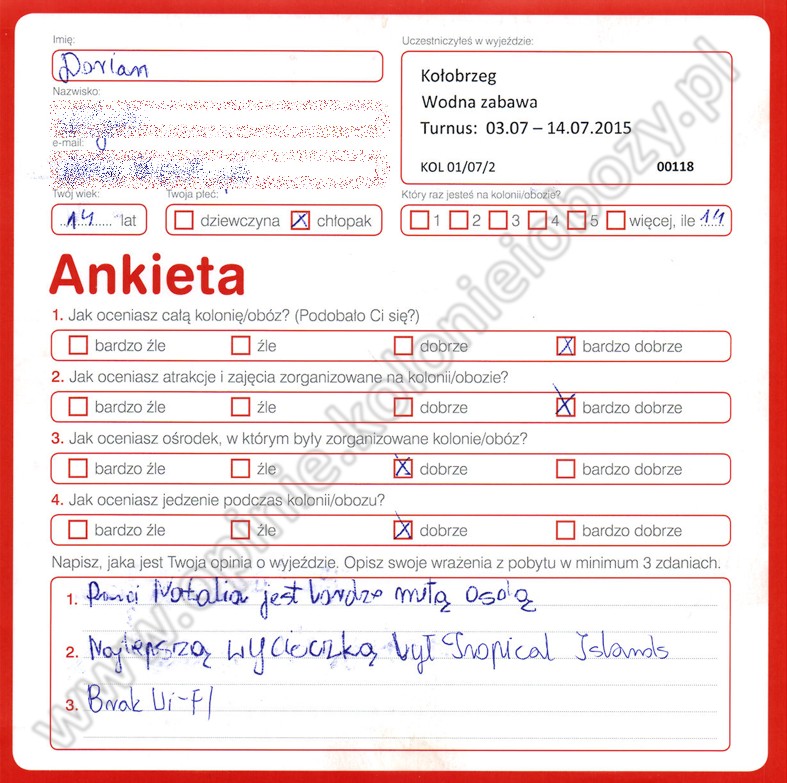 Imię:
Dorian
Nazwisko:
e-mail:
Twój wiek:
14 lat
Twoja płeć:
dziewczyna chłopak
Uczestniczyłeś w wyjeździe:
Kołobrzeg
Wodna zabawa
Turnus: 03.07 – 14.07.2015
KOL 01/07/2 00118
Który raz jesteś na kolonii/obozie?
1 2 3 4 5 więcej, ile 14
Ankieta
1. Jak oceniasz całą kolonię/obóz? (Podobało Ci się?)
bardzo źle źle dobrze bardzo dobrze
2. Jak oceniasz atrakcje i zajęcia zorganizowane na kolonii/obozie?
bardzo źle źle dobrze bardzo dobrze
3. Jak oceniasz ośrodek, w którym były zorganizowane kolonie/obóz?
bardzo źle źle dobrze bardzo dobrze
4. Jak oceniasz jedzenie podczas kolonii/obozu?
bardzo źle źle dobrze bardzo dobrze
Napisz, jaka jest Twoja opinia o wyjeździe. Opisz swoje wrażenia z pobytu w minimum 3 zdaniach.
1. Natalia jest bardzo miłą osobą
2. Najlepszą wycieczką był Tropical Islands
3. Brak Wi-FI
www.opinie.kolonieiobozy.pl